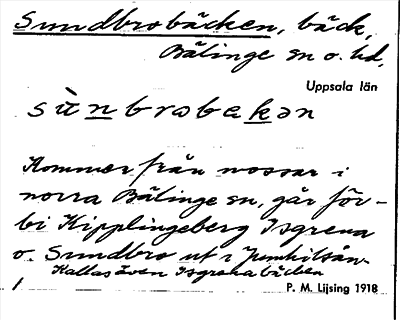 Sundbrobäcken, bäck,
Bälinge sn o. hd,
Uppsala län
sùnbrobekən
Kommer från mossar i
norra Bälinge sn, går för-
bi Kipplingeberg Isgrena
o. Sundbro ut i Jumkilsån.
Kallas även Isgrenabäcken
1
P. M. Lijsing 1918